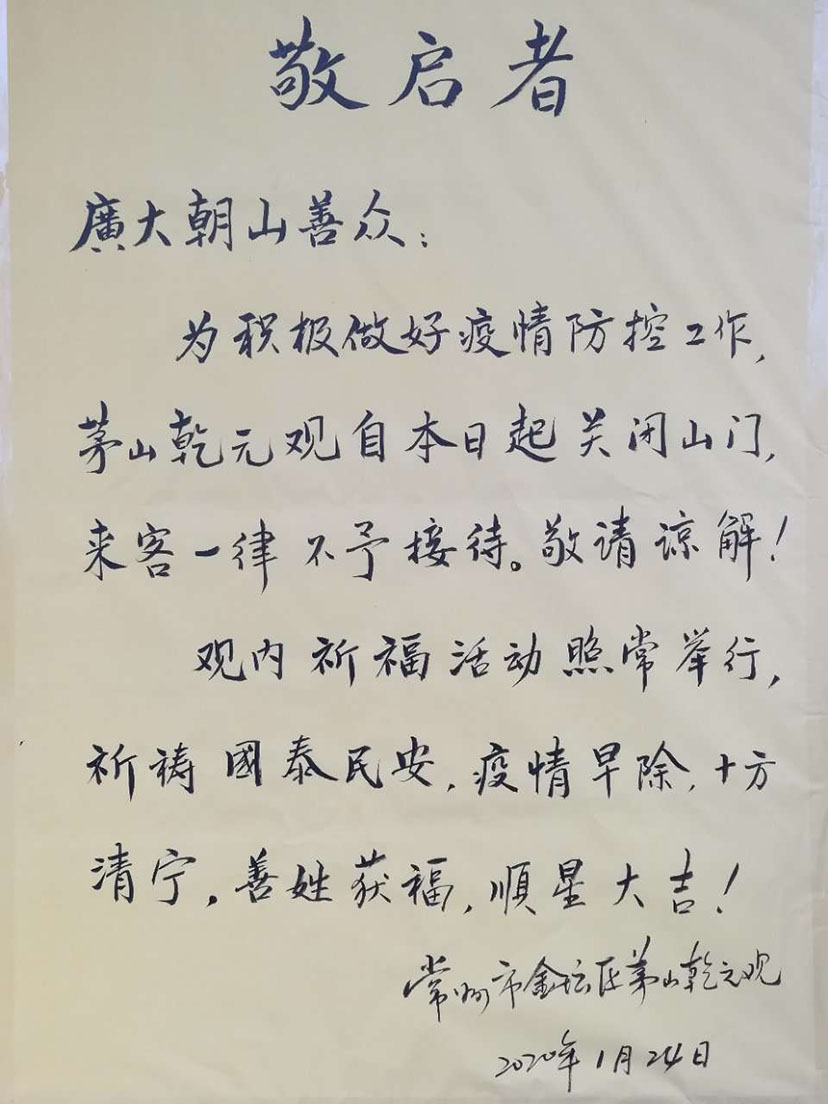 敬启者
廣大朝山善众：
为积极做好疫情防控工作,
茅山乾元观自本日起关闭山门,
来客一律不予接待。敬请谅解!
观内祈福活动照常举行,
祈祷國泰民安,疫情早除,十方
清宁。善姓获福,順星大吉!
常州市金坛区茅山乾元观
2020年1月24日